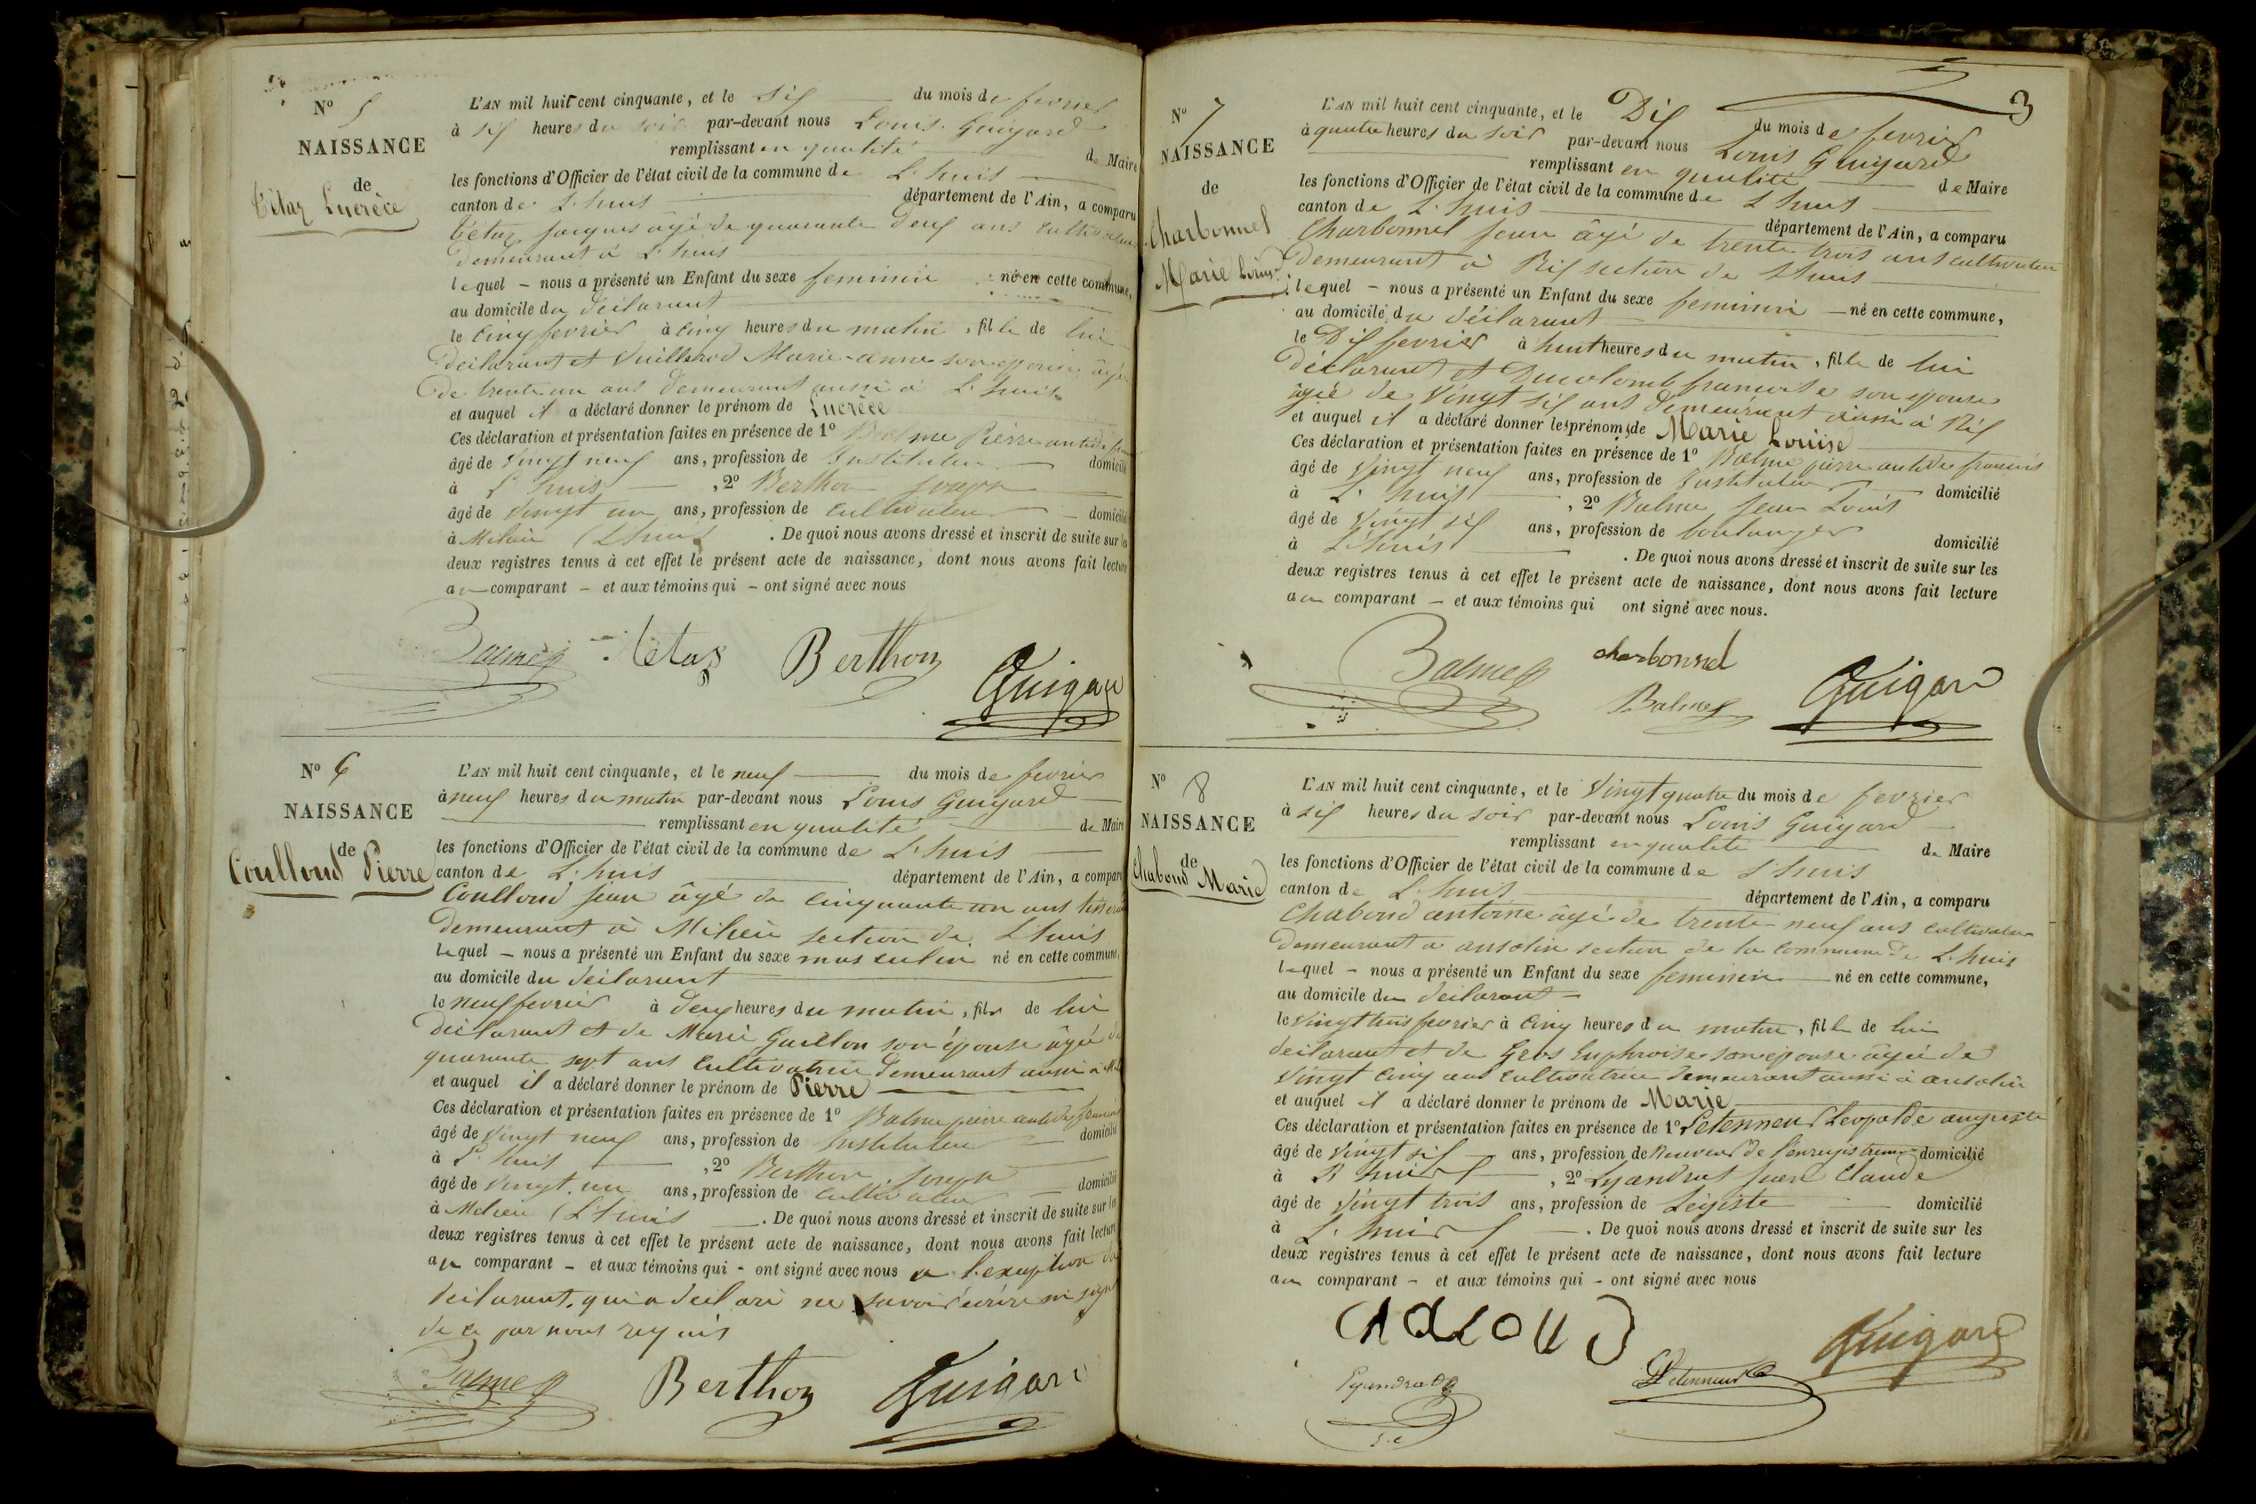 N° 5
NAISSANCE
de
Tétaz Lucrèce
L'AN mil huit cent cinquante, et le six du mois de fevrier
à six heures du soir par-devant nous Louis Guigard
remplissant en qualité de Maire
les fonctions d'Officier de l'état civil de la commune de L'huis
canton de L'huis département de l'Ain, a comparu
Tétaz Jacques âgé de quarante deux ans cultivateur
demeurant à L'huis
lequel – nous a présenté un Enfant du sexe feminin né en cette commune,
au domicile du déclarant
le cinq fevrier à cinq heures du matin, fille de lui
déclarant et Vuillerod Marie-anne son epouse âgée
de trente un ans demeurant aussi à L'huis
et auquel il a déclaré donner le prénom de Lucrèce
Ces déclaration et présentation faites en présence de 1° Balme Pierre antide
âgé de vingt neuf ans, profession de Instituteur domicilié
à L'huis , 2° Berthon Joseph
âgé de vingt un ans, profession de cultivateur domicilié
à Milieu (L'huis . De quoi nous avons dressé et inscrit de suite sur les
deux registres tenus à cet effet le présent acte de naissance, dont nous avons fait lecture
au comparant – et aux témoins qui – ont signé avec nous
Balme Tetaz Berthon Guigard
N° 6
NAISSANCE
de
Coulloud Pierre
L'AN mil huit cent cinquante, et le neuf du mois de fevrier
à neuf heures du matin par-devant nous Louis Guigard
remplissant en qualité de Maire
les fonctions d'Officier de l'état civil de la commune de L'huis
canton de L'huis département de l'Ain, a comparu
Coulloud Jean âgé de cinquante un ans
demeurant à Milieu section de L'huis
lequel – nous a présenté un Enfant du sexe masculin né en cette commune,
au domicile du déclarant
le neuf fevrier à deux heures du matin, fils de lui
déclarant et de Marie Guillon son épouse âgée de
quarante sept ans cultivatrice demeurant aussi à
et auquel il a déclaré donner le prénom de Pierre
Ces déclaration et présentation faites en présence de 1° Balme pierre antide françois
âgé de vingt neuf ans, profession de Instituteur domicilié
à L'huis , 2° Berthon Joseph
âgé de vingt un ans, profession de cultivateur domicilié
à Milieu (L'huis . De quoi nous avons dressé et inscrit de suite sur les
deux registres tenus à cet effet le présent acte de naissance, dont nous avons fait lecture
au comparant – et aux témoins qui - ont signé avec nous a l'exception du
déclarant, qui a declaré ne savoir écrire ni signer
de ce par nous requis
Balme Berthon Guigard
3
N° 7
NAISSANCE
de
Charbonnel
Marie Louise
L'AN mil huit cent cinquante, et le Dix du mois de fevrier
à quatre heures du soir par-devant nous Louis Guigard
remplissant en qualité de Maire
les fonctions d'Officier de l'état civil de la commune de L'huis
canton de L'huis département de l'Ain, a comparu
Charbonnel Jean âgé de trente trois ans cultivateur
demeurant à Rix section de L'huis
lequel – nous a présenté un Enfant du sexe feminin né en cette commune,
au domicile du déclarant
le Dix fevrier à huit heures du matin, fille de lui
déclarant et Ducolomb francoise son epouse
âgée de vingt six ans demeurant aussi à Rix
et auquel il a déclaré donner les prénoms de Marie Louise
Ces déclaration et présentation faites en présence de 1° Balme pierre antide francois
âgé de vingt neuf ans, profession de Instituteur domicilié
à L'huis , 2° Balme Jean Louis
âgé de vingt six ans, profession de boulanger domicilié
à L'huis . De quoi nous avons dressé et inscrit de suite sur les
deux registres tenus à cet effet le présent acte de naissance, dont nous avons fait lecture
au comparant – et aux témoins qui ont signé avec nous.
Balme charbonnel Balme Guigard
N° 8
NAISSANCE
de
Chaboud Marie
L'AN mil huit cent cinquante, et le vingt quatre du mois de fevrier
à six heures du soir par-devant nous Louis Guigard
remplissant en qualité de Maire
les fonctions d'Officier de l'état civil de la commune de L'huis
canton de L'huis département de l'Ain, a comparu
Chaboud antoine âgé de trente neuf ans cultivateur
demeurant a ansolin section de la commune de L'huis
lequel – nous a présenté un Enfant du sexe feminin né en cette commune,
au domicile du déclarant
le vingt trois fevrier à cinq heures du matin, fille de lui
déclarant et de Gros Euphroise son epouse âgée de
vingt cinq ans cultivatrice demeurant aussi à ansolin
et auquel il a déclaré donner le prénom de Marie
Ces déclaration et présentation faites en présence de 1° Letenneur Léopolde auguste
âgé de vingt six ans, profession de Receveur de l'enregistrement domicilié
à L'huis , 2° Lyandrat Jean Claude
âgé de vingt trois ans, profession de Légiste domicilié
à L'huis . De quoi nous avons dressé et inscrit de suite sur les
deux registres tenus à cet effet le présent acte de naissance, dont nous avons fait lecture
au comparant – et aux témoins qui - ont signé avec nous
Guigard
Lyandrat Letenneur